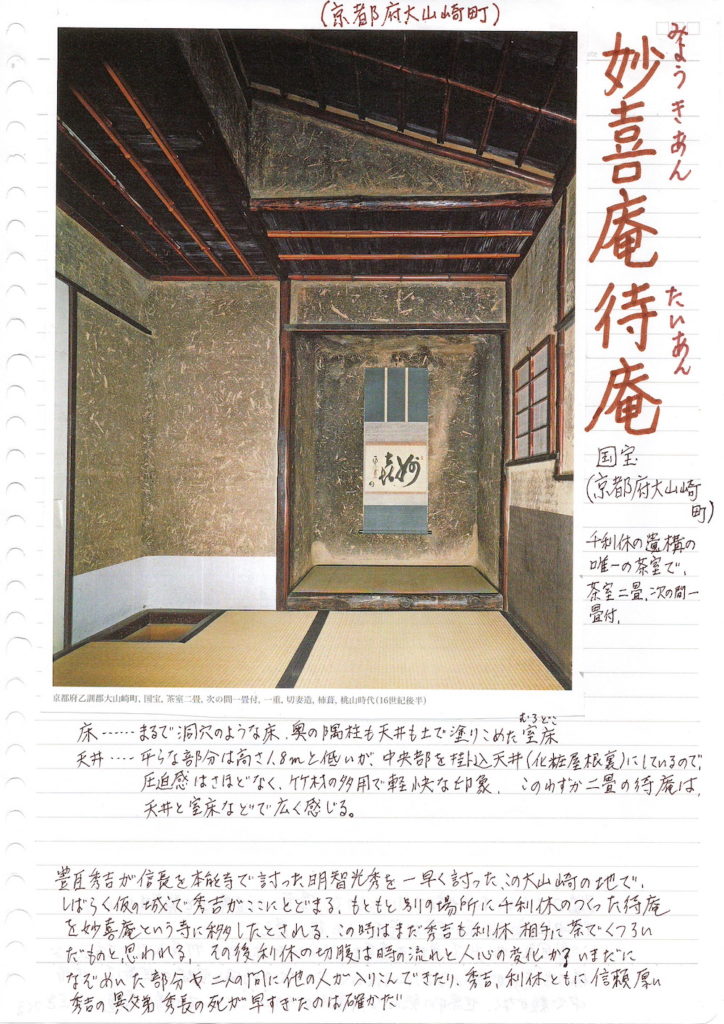 (京都府大山崎町)
みょうきあん
たいあん
妙喜庵待庵
国宝
(京都府大山崎
町)
千利休の遺構の
唯一の茶室で、
茶室二畳、次の間一
畳付。
京都府乙訓郡大山崎町, 国宝, 茶室二畳, 次の間一畳付, 一重, 切妻造, 杮葺, 桃山時代(16世紀後半)
むろどこ
床……まるで洞穴のような床、奥の隅柱も天井も土で塗りこめた室床
天井‥‥平らな部分は高さ1.8mと低いが、中央部を掛込天井(化粧屋根裏)にしているので、
圧迫感はさほどなく、竹材の多用で軽快な印象、このわずか二畳の待庵は、
天井と室床などで広く感じる。
豊臣秀吉が信長を本能寺で討った明智光秀を一早く討った、この大山崎の地で、
しばらく仮の城で秀吉がここにとどまる、もともと別の場所に千利休のつくった待庵
を妙喜庵という寺に移したとされる、この時はまだ秀吉も利休相手に茶でくつろい
だものと思われる、その後利休の切腹は時の流れと人心の変化か、いまだに
なぞめいた部分や二人の間に他の人が入りこんできたり、秀吉、利休ともに信頼厚い
秀吉の異父弟秀長の死が早すぎたのは確かだ